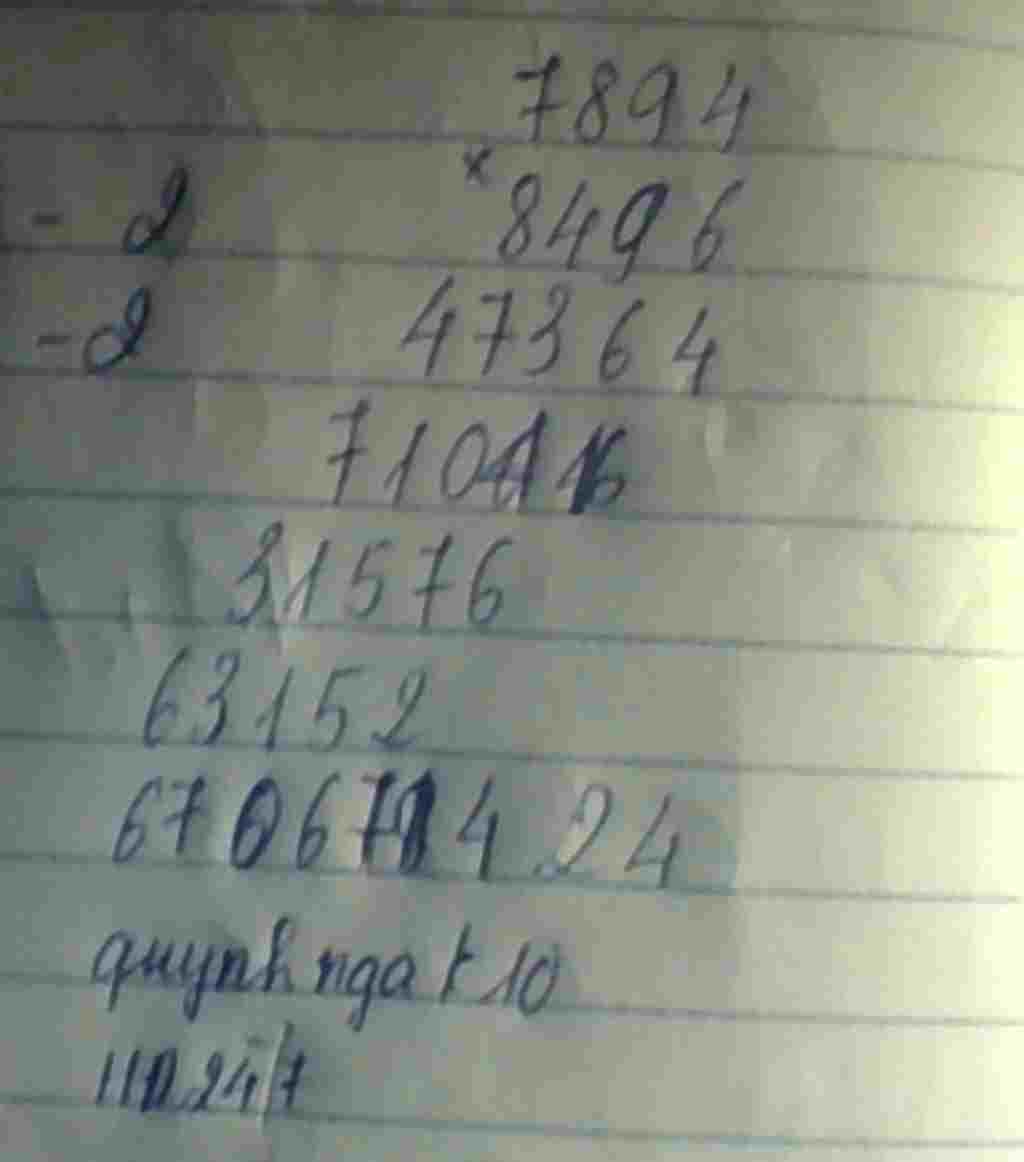 7894
- 2 x 8496
-2 47364
71046
31576
63152
67067424
quynh nga t 10
24/7